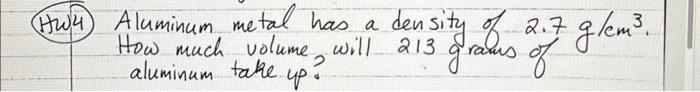 HW4 Aluminum metal has a density of 2.7 g/cm³.
How much volume will 213 grams of
aluminum take up?